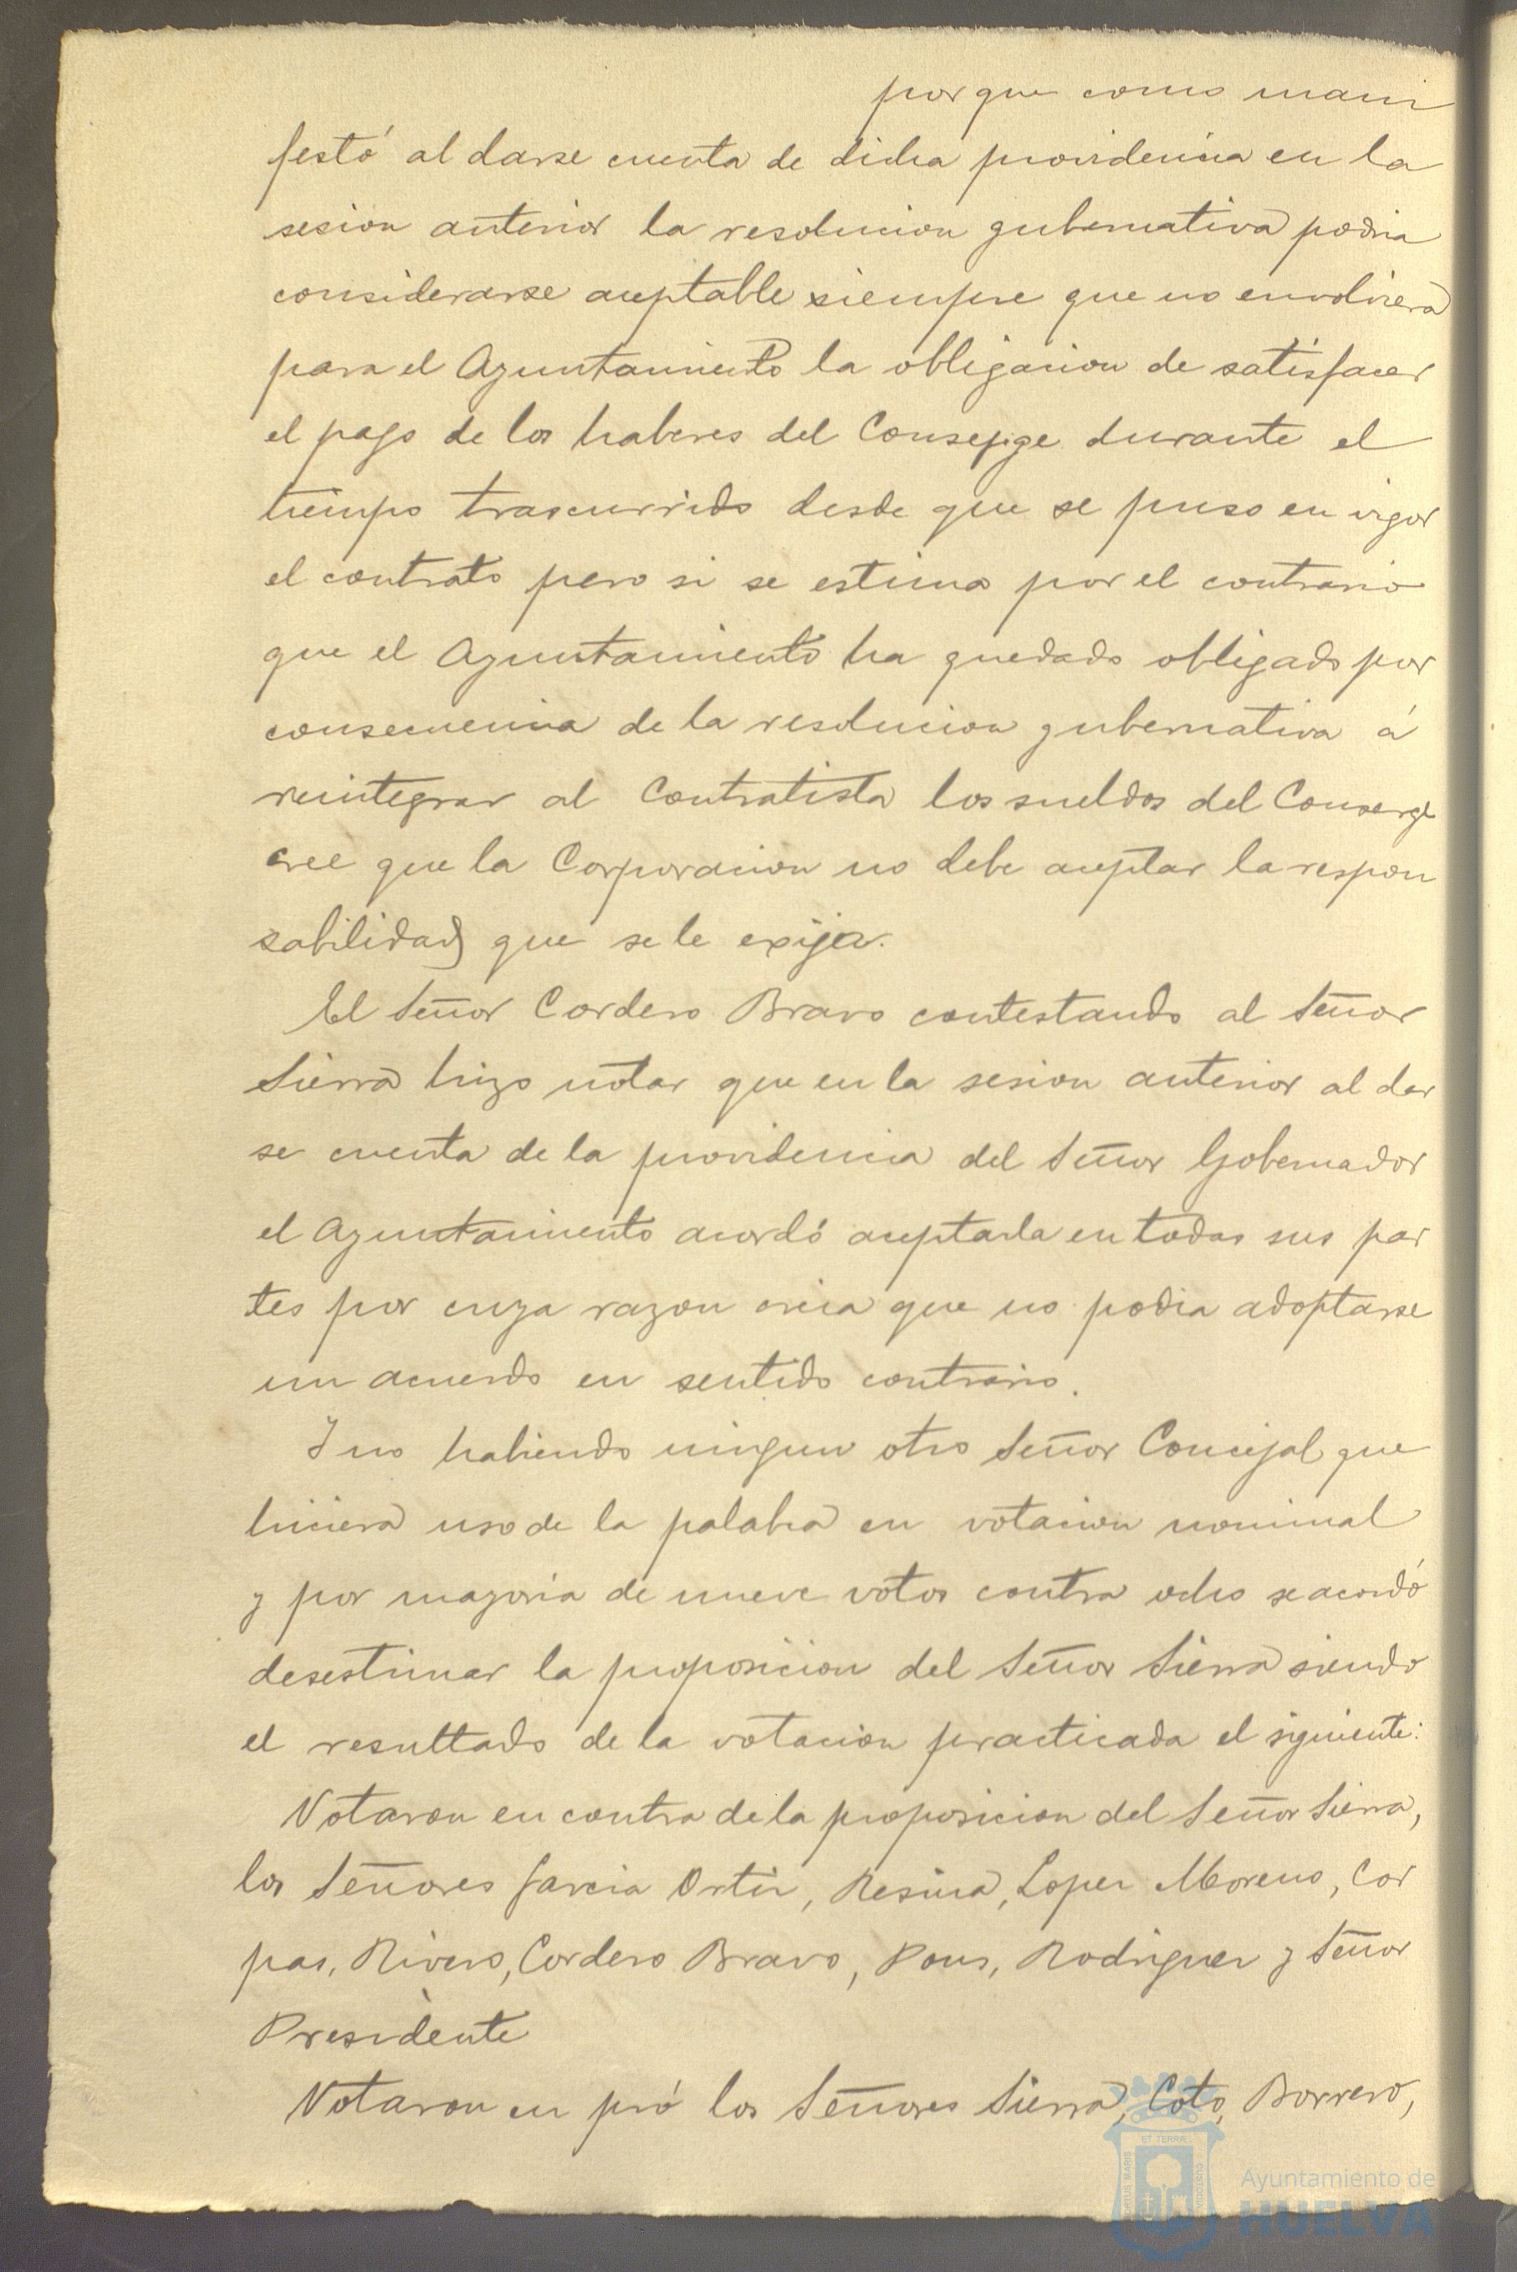 porque como mani
festó al darse cuenta de dicha providencia en la
sesion anterior la resolucion gubernativa podria
considerarse aceptable siempre que no envolviera
para el Ayuntamiento la obligacion de satisfacer
el pago de los haberes del Conserge durante el
tiempo trascurrido desde que se puso en vigor
el contrato pero si se estima por el contrario
que el Ayuntamiento ha quedado obligado por
consecuencia de la resolucion gubernativa á
reintegrar al Contratista los sueldos del Conserge
cree que la Corporacion no debe aceptar la respon
sabilidad que se le exija.
El Señor Cordero Bravo contestando al Señor
Sierra hizo notar que en la sesion anterior al dar
se cuenta de la providencia del Señor Gobernador
el Ayuntamiento acordó aceptarla en todas sus par
tes por cuya razon creia que no podia adoptarse
un acuerdo en sentido contrario.
Y no habiendo ningun otro Señor Concejal que
hiciera uso de la palabra en votacion nominal
y por mayoria de nueve votos contra ocho se acordó
desestimar la proposicion del Señor Sierra siendo
el resultado de la votacion practicada el siguiente:
Votaron en contra de la proposicion del Señor Sierra,
los Señores Garcia Ortiz, Resina, Lopez Moreno, Cor
pas, Rivero, Cordero Bravo, Pons, Rodriguez y Señor
Presidente
Votaron en pró los Señores Sierra, Coto, Borrero,
ET TERRA
Ayuntamiento de
HUELVA